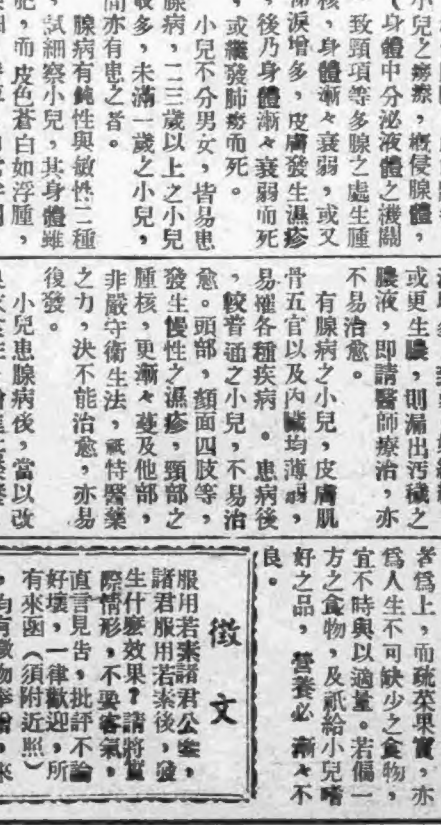 小兒之癆瘵，概侵腺體，
（身體中分泌液體之機關
致頸項等多腺之處生腫
核，身體漸々衰弱，或又
涕淚增多，皮膚發生濕疹
，後乃身體漸々衰弱而死
，或繼發肺癆而死。
小兒不分男女，皆易患
腺病，二三歲以上之小兒
最多，未滿一歲之小兒，
間亦有患之者。
腺病有鈍性與敏性二種
，試細察小兒，其身體雖
肥，而皮色蒼白如浮腫，
或更生膿，則漏出污穢之
膿液，即請醫師療治，亦
不易治愈。
有腺病之小兒，皮膚肌
骨五官以及內臟均薄弱，
易罹各種疾病。患病後
，較普通之小兒，不易治
愈。頭部，顏面四肢等，
發生慢性之濕疹，頸部之
腫核，更漸々蔓及他部，
非嚴守衛生法，祇特醫藥
之力，決不能治愈，亦易
復發。
小兒患腺病後，當以改
者爲上，而蔬菜果實，亦
爲人生不可缺少之食物，
宜不時與以適量。若偏一
方之食物，及祇給小兒嗜
好之品，營養必漸々不
良。
徵文
服用若素諸君公鑒，
諸君服用若素後，發
生什麽效果？請將實
際情形，不要客氣，
直言見告，批評不論
好壞，一律歡迎，所
有來函（須附近照）
，均有微物奉贈，來